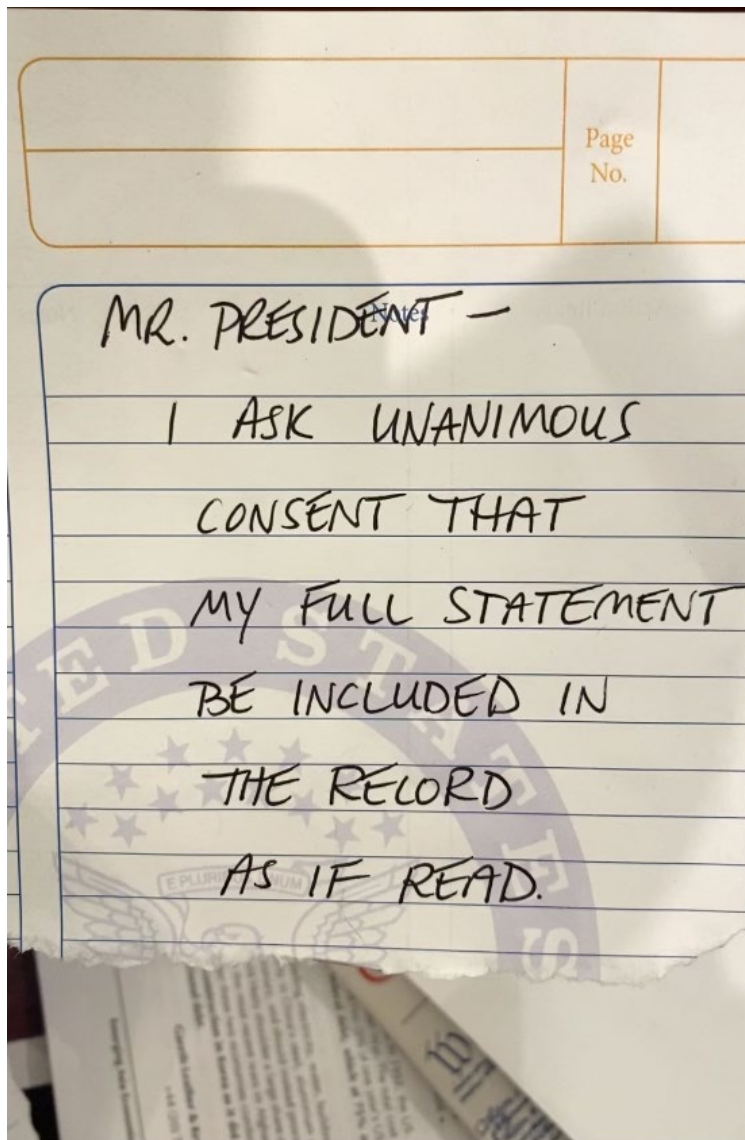 Page
No.
Notes
MR. PRESIDENT —
I ASK UNANIMOUS
CONSENT THAT
MY FULL STATEMENT
BE INCLUDED IN
THE RECORD
AS IF READ.
TED STATES
E PLURIBUS UNUM